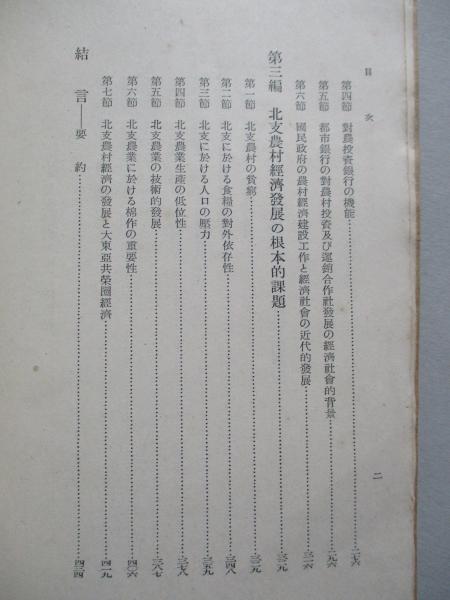 目次
第四節 對農投資銀行の機能 二七六
第五節 都市銀行の對農村投資及び運銷合作社發展の經濟社會的背景 二九六
第六節 國民政府の農村經濟建設工作と經濟社會の近代的發展 三一六
第三編 北支農村經濟發展の根本的課題 三三九
第一節 北支農村の貧窮 三三九
第二節 北支に於ける食糧の對外依存性 三四八
第三節 北支に於ける人口の壓力 三五九
第四節 北支農業生産の低位性 三七八
第五節 北支農業の技術的發展 三八七
第六節 北支農業に於ける棉作の重要性 四〇六
第七節 北支農村經濟の發展と大東亞共榮圈經濟 四一九
結言——要約 四三四
二